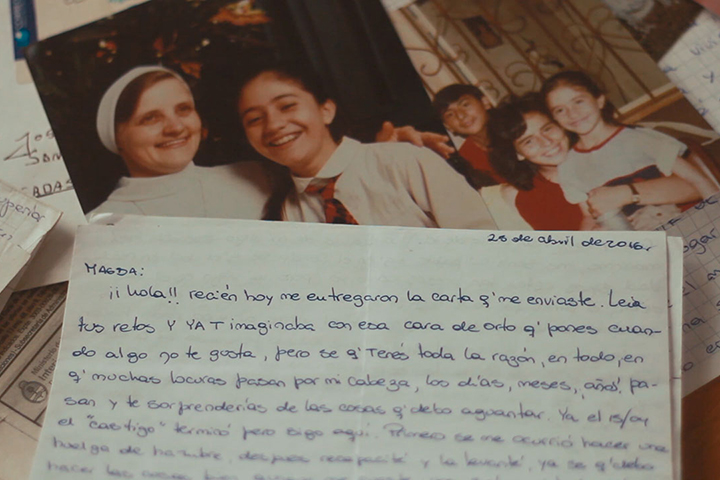 28 de abril de 2016.
MAGDA:
¡¡ Hola!! recién hoy me entregaron la carta q' me enviaste. Leía
tus retos Y YA T imaginaba con esa cara de orto q' pones cuan-
do algo no te gusta, pero se q' Tenés toda la razón, en todo, en
q' muchas locuras pasan por mi cabeza, los días, meses, años! pa-
san y te sorprenderías de las cosas q' debo aguantar. Ya el
el "castigo" terminó pero sigo aquí. Primero se me ocurrió hacer una
huelga de hambre, después recapacité y la levanté, ya se q' debo
hacer las cosas